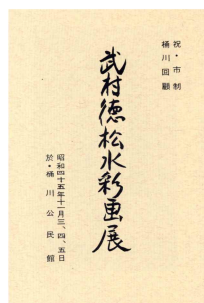 祝・市制
桶川回顧
武村徳松水彩画展
昭和四十五年十一月三、四、五日
於・桶川公民館